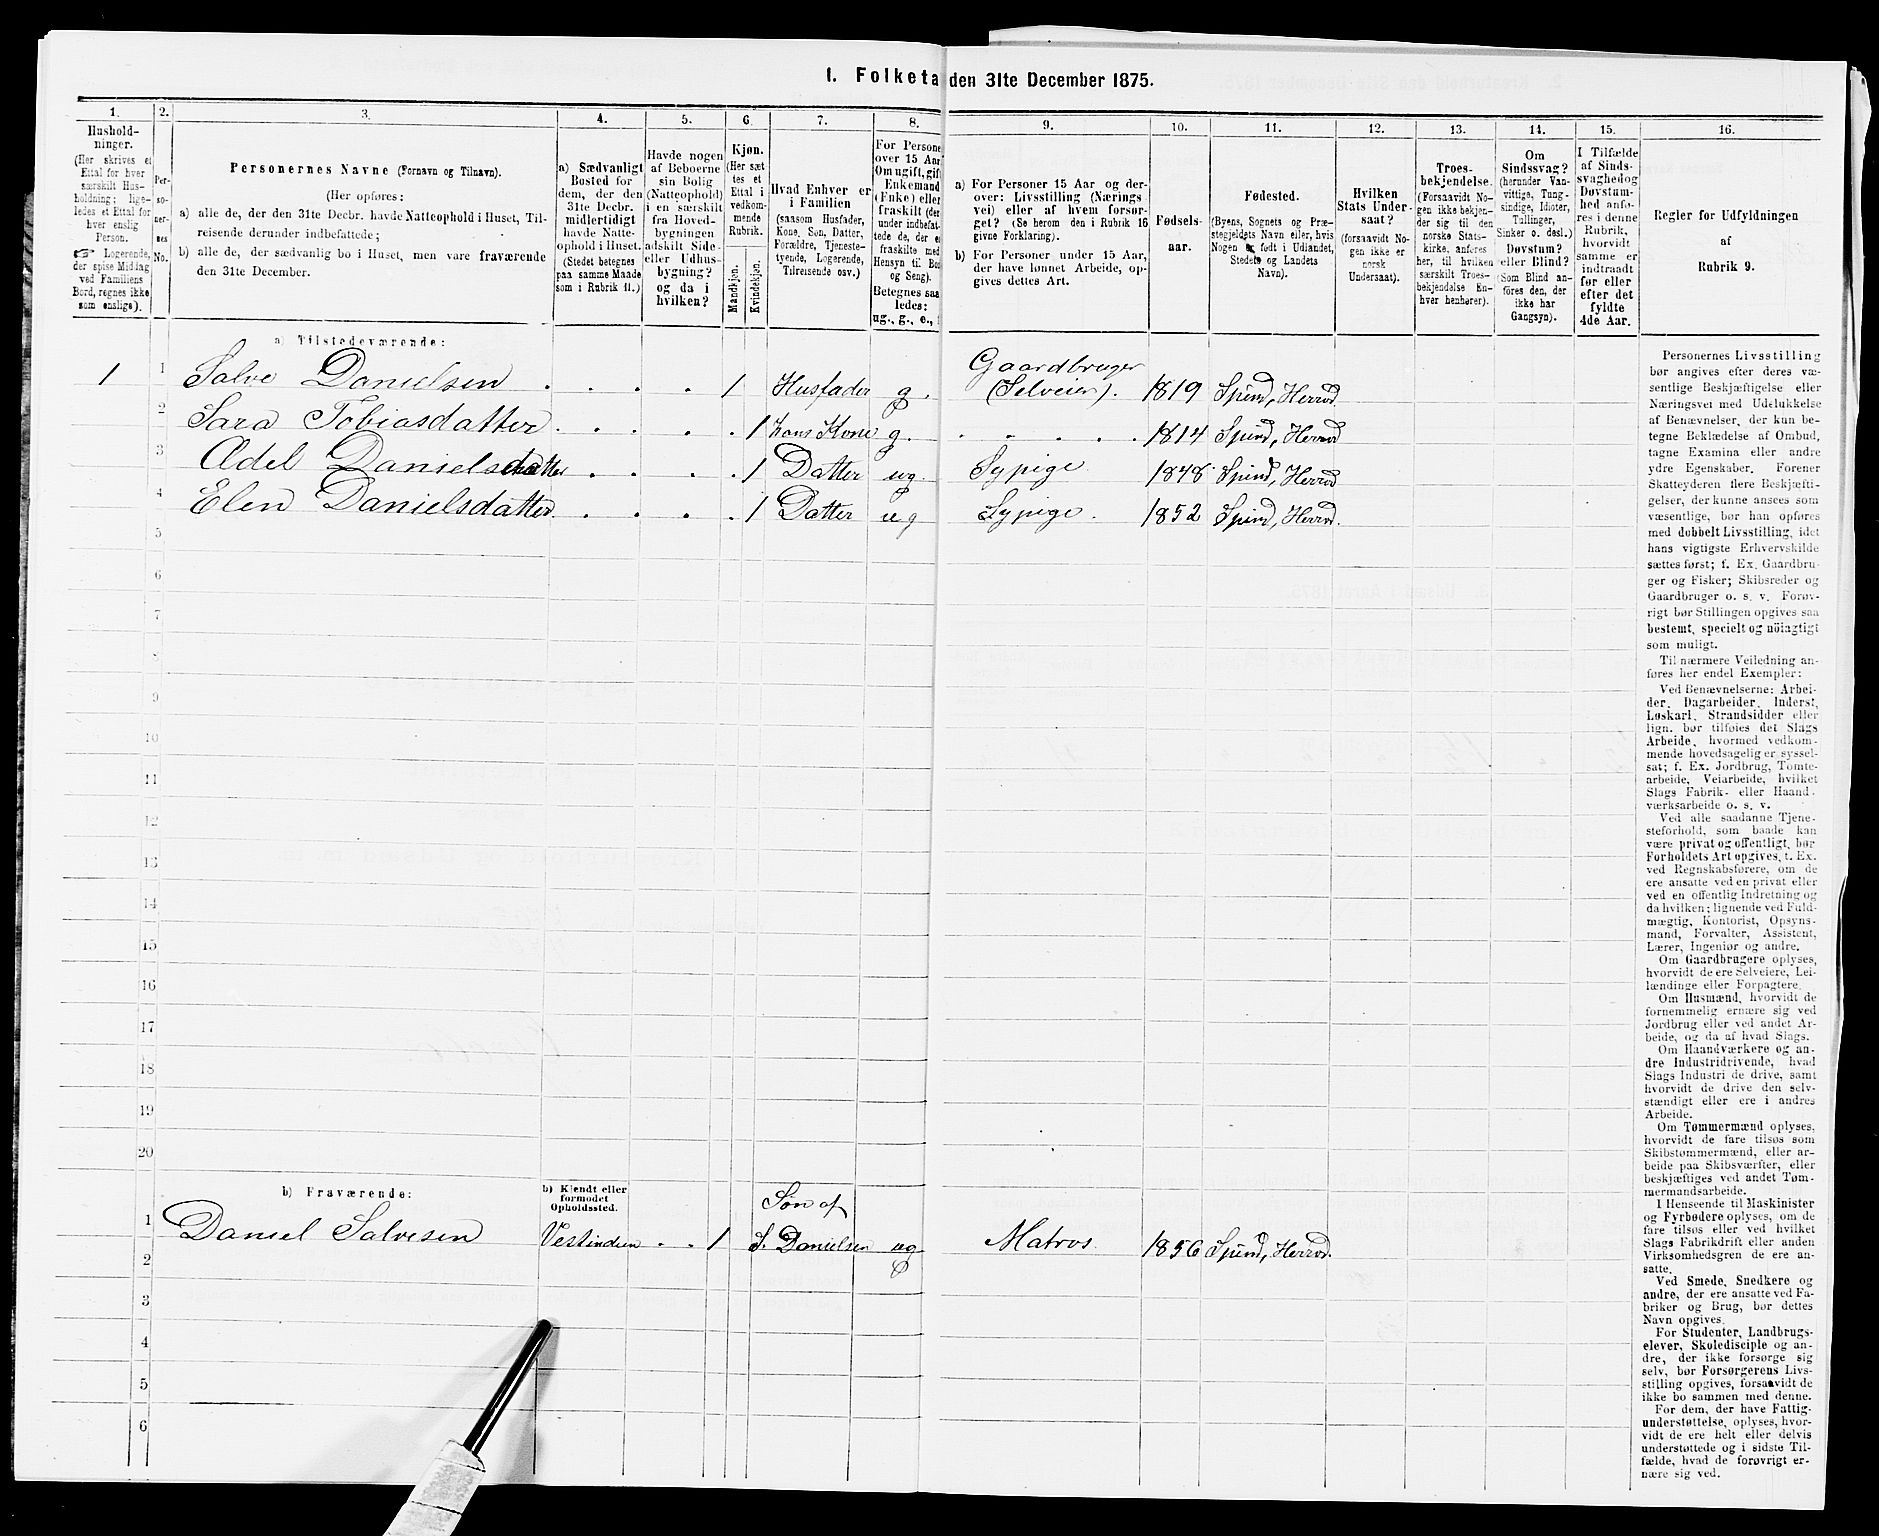 1. Folketa den 31te December 1875.
1. 2. 3. 4. 5. 6. 7. 8. 9. 10. 11. 12. 13. 14. 15. 16.
Hushold-
ninger.
(Her skrives et
Ettal for hver
særskilt Hus-
holdning; lige-
ledes et Ettal for
hver enslig
Person.
☞ Logerende,
der spise Middag
ved Familiens
Bord, regnes ikke
som enslige).
Per-
so-
ner-
nes
No.
Personernes Navne (Fornavn og Tilnavn).
(Her opføres:
a) alle de, der den 31te Decbr. havde Natteophold i Huset, Til-
reisende derunder indbefattede;
b) alle de, der sædvanlig bo i Huset, men vare fraværende
den 31te December.
a) Sædvanligt
Bosted for
dem, der den
31te Decbr.
midlertidigt
havde Natte-
ophold i Huset.
(Stedet betegnes
paa samme Maade
som i Rubrik 11.)
Havde nogen
af Beboerne
sin Bolig
(Natteophold)
i en særskilt
fra Hoved-
bygningen
adskilt Side-
eller Udhus-
bygning?
og da i
hvilken?
Kjøn.
(Her sæt
tes et
Ettal i
vedkom-
mende
Rubrik.
Mandkjøn.
Kvindekjøn.
Hvad Enhver er
i Familien
(saasom Husfader,
Kone, Søn, Datter,
Forældre, Tjeneste-
tyende, Logerende,
Tilreisende osv.)
For Persone
over 15 Aar
Om ugift, gift
Enkemand
(Enke) eller
fraskilt (der
under indbefat
tede de, der e
fraskilte med
Hensyn til Bo
og Seng).
Betegnes saa
ledes:
ug., g., e., f
a) For Personer 15 Aar og der-
over: Livsstilling (Nærings
vei) eller af hvem forsør-
get? (Se herom den i Rubrik 16
givne Forklaring).
b) For Personer under 15 Aar,
der have lønnet Arbeide, op-
gives dettes Art.
Fødsels-
aar.
Fødested.
(Byens, Sognets og Præ-
stegjeldets Navn eller, hvis
Nogen er født i Udlandet,
Stedets og Landets
Navn).
Hvilken
Stats Under-
saat?
(forsaavidt No-
gen ikke er
norsk
Undersaat).
Troes-
bekjendelse.
(Forsaavidt No-
gen ikke bekjen-
der sig til den
norske Stats-
kirke, anføres
her, til hvilken
særskilt Troes-
bekjendelse En-
hver henhører).
Om
Sindssvag?
(herunder Van-
vittige, Tung-
sindige, Idioter,
Tullinger,
Sinker o. desl.)
Døvstum?
eller Blind?
(Som Blind an-
føres den, der
ikke har
Gangsyn).
I Tilfælde
af Sinds-
svaghed og
Døvstum-
hed anfø-
res i denne
Rubrik,
hvorvidt
samme er
indtraadt
før eller
efter det
fyldte
4de Aar.
Regler for Udfyldningen
af
Rubrik 9.
a) Tilstedeværende:
1 1 Salve Danielsen . . . . 1 Husfader g. Gaardbruger (Selveier). 1819 Spind, Herrod.
2 Sara Tobiasdatter . . . . 1 hans Kone g. . . . . . 1814 Spind, Herrod
3 Ædel Danielsdatter . . . . 1 Datter ug Sypige. 1848 Spind, Herrod
4 Elen Danielsdatter . . . . 1 Datter ug Sypige. 1852 Spind, Herrod.
5
6
7
8
9
10
11
12
13
14
15
16
17
18
19
20
b) Fraværende:
b) Kjendt eller
formodet
Opholdssted.
1 Daniel Salvesen Vestindien . . 1 Søn af S. Danielsen ug Matros. 1856 Spind, Herrod.
2
3
4
5
6
Personernes Livsstilling
bør angives efter deres væ-
sentlige Beskjæftigelse eller
Næringsvei med Udelukkelse
af Benævnelser, der kun be-
tegne Beklædelse af Ombud,
tagne Examina eller andre
ydre Egenskaber. Forener
Skatteyderen flere Beskjæfti-
gelser, der kunne ansees som
væsentlige, bør han opføres
med dobbelt Livsstilling, idet
hans vigtigste Erhvervskilde
sættes først; f. Ex. Gaardbru-
ger og Fisker; Skibsreder og
Gaardbruger o. s. v. Forøv-
rigt bør Stillingen opgives saa
bestemt, specielt og nöiagtigt
som muligt.
Til nærmere Veiledning an-
føres her endel Exempler:
Ved Benævnelserne: Arbei-
der, Dagarbeider, Inderst,
Løskarl, Strandsidder eller
lign. bør tilføies det Slags
Arbeide, hvormed vedkom-
mende hovedsagelig er syssel-
sat; f. Ex. Jordbrug, Tomte-
arbeide, Veiarbeide, hvilket
Slags Fabrik- eller Haand-
værksarbeide o. s. v.
Ved alle saadanne Tjene-
steforhold, som baade kan
være privat og offentligt, bør
Forholdets Art opgives, t. Ex.
ved Regnskabsførere, om de
ere ansatte ved en privat eller
ved en offentlig Indretning og
da hvilken; lignende ved Fuld-
mægtig, Kontorist, Opsyns-
mand, Forvalter, Assistent,
Lærer, Ingeniør og andre.
Om Gaardbrugere oplyses,
hvorvidt de ere Selveiere, Lei-
lændinge eller Forpagtere.
Om Husmænd, hvorvidt de
fornemmelig ernære sig ved
Jordbrug eller ved andet Ar-
beide, og da af hvad Slags.
Om Haandværkere og an-
dre Industridrivende, hvad
Slags Industri de drive, samt
hvorvidt de drive den selv-
stændigt eller ere i andres
Arbeide.
Om Tømmermænd oplyses,
hvorvidt de fare tilsøs som
Skibstømmermænd, eller ar-
beide paa Skibsværfter, eller
beskjæftiges ved andet Tøm-
mermandsarbeide.
I Henseende til Maskinister
og Fyrbødere oplyses, om de
fare tilsøs eller ved hvilket
Slags Fabrikdrift eller anden
Virksomhedsgren de ere an-
satte.
Ved Smede, Snedkere og
andre, der ere ansatte ved Fa-
briker og Brug, bør dettes
Navn opgives.
For Studenter, Landbrugs-
elever, Skoledisciple og an-
dre, der ikke forsørge sig
selv, bør Forsørgerens Livs-
stilling opgives, forsaavidt de
ikke bo sammen med denne.
For dem, der have Fattig-
understøttelse, oplyses, hvor-
vidt de ere helt eller delvis
understøttede og i sidste Til-
fælde, hvad de forøvrigt er-
nære sig ved.